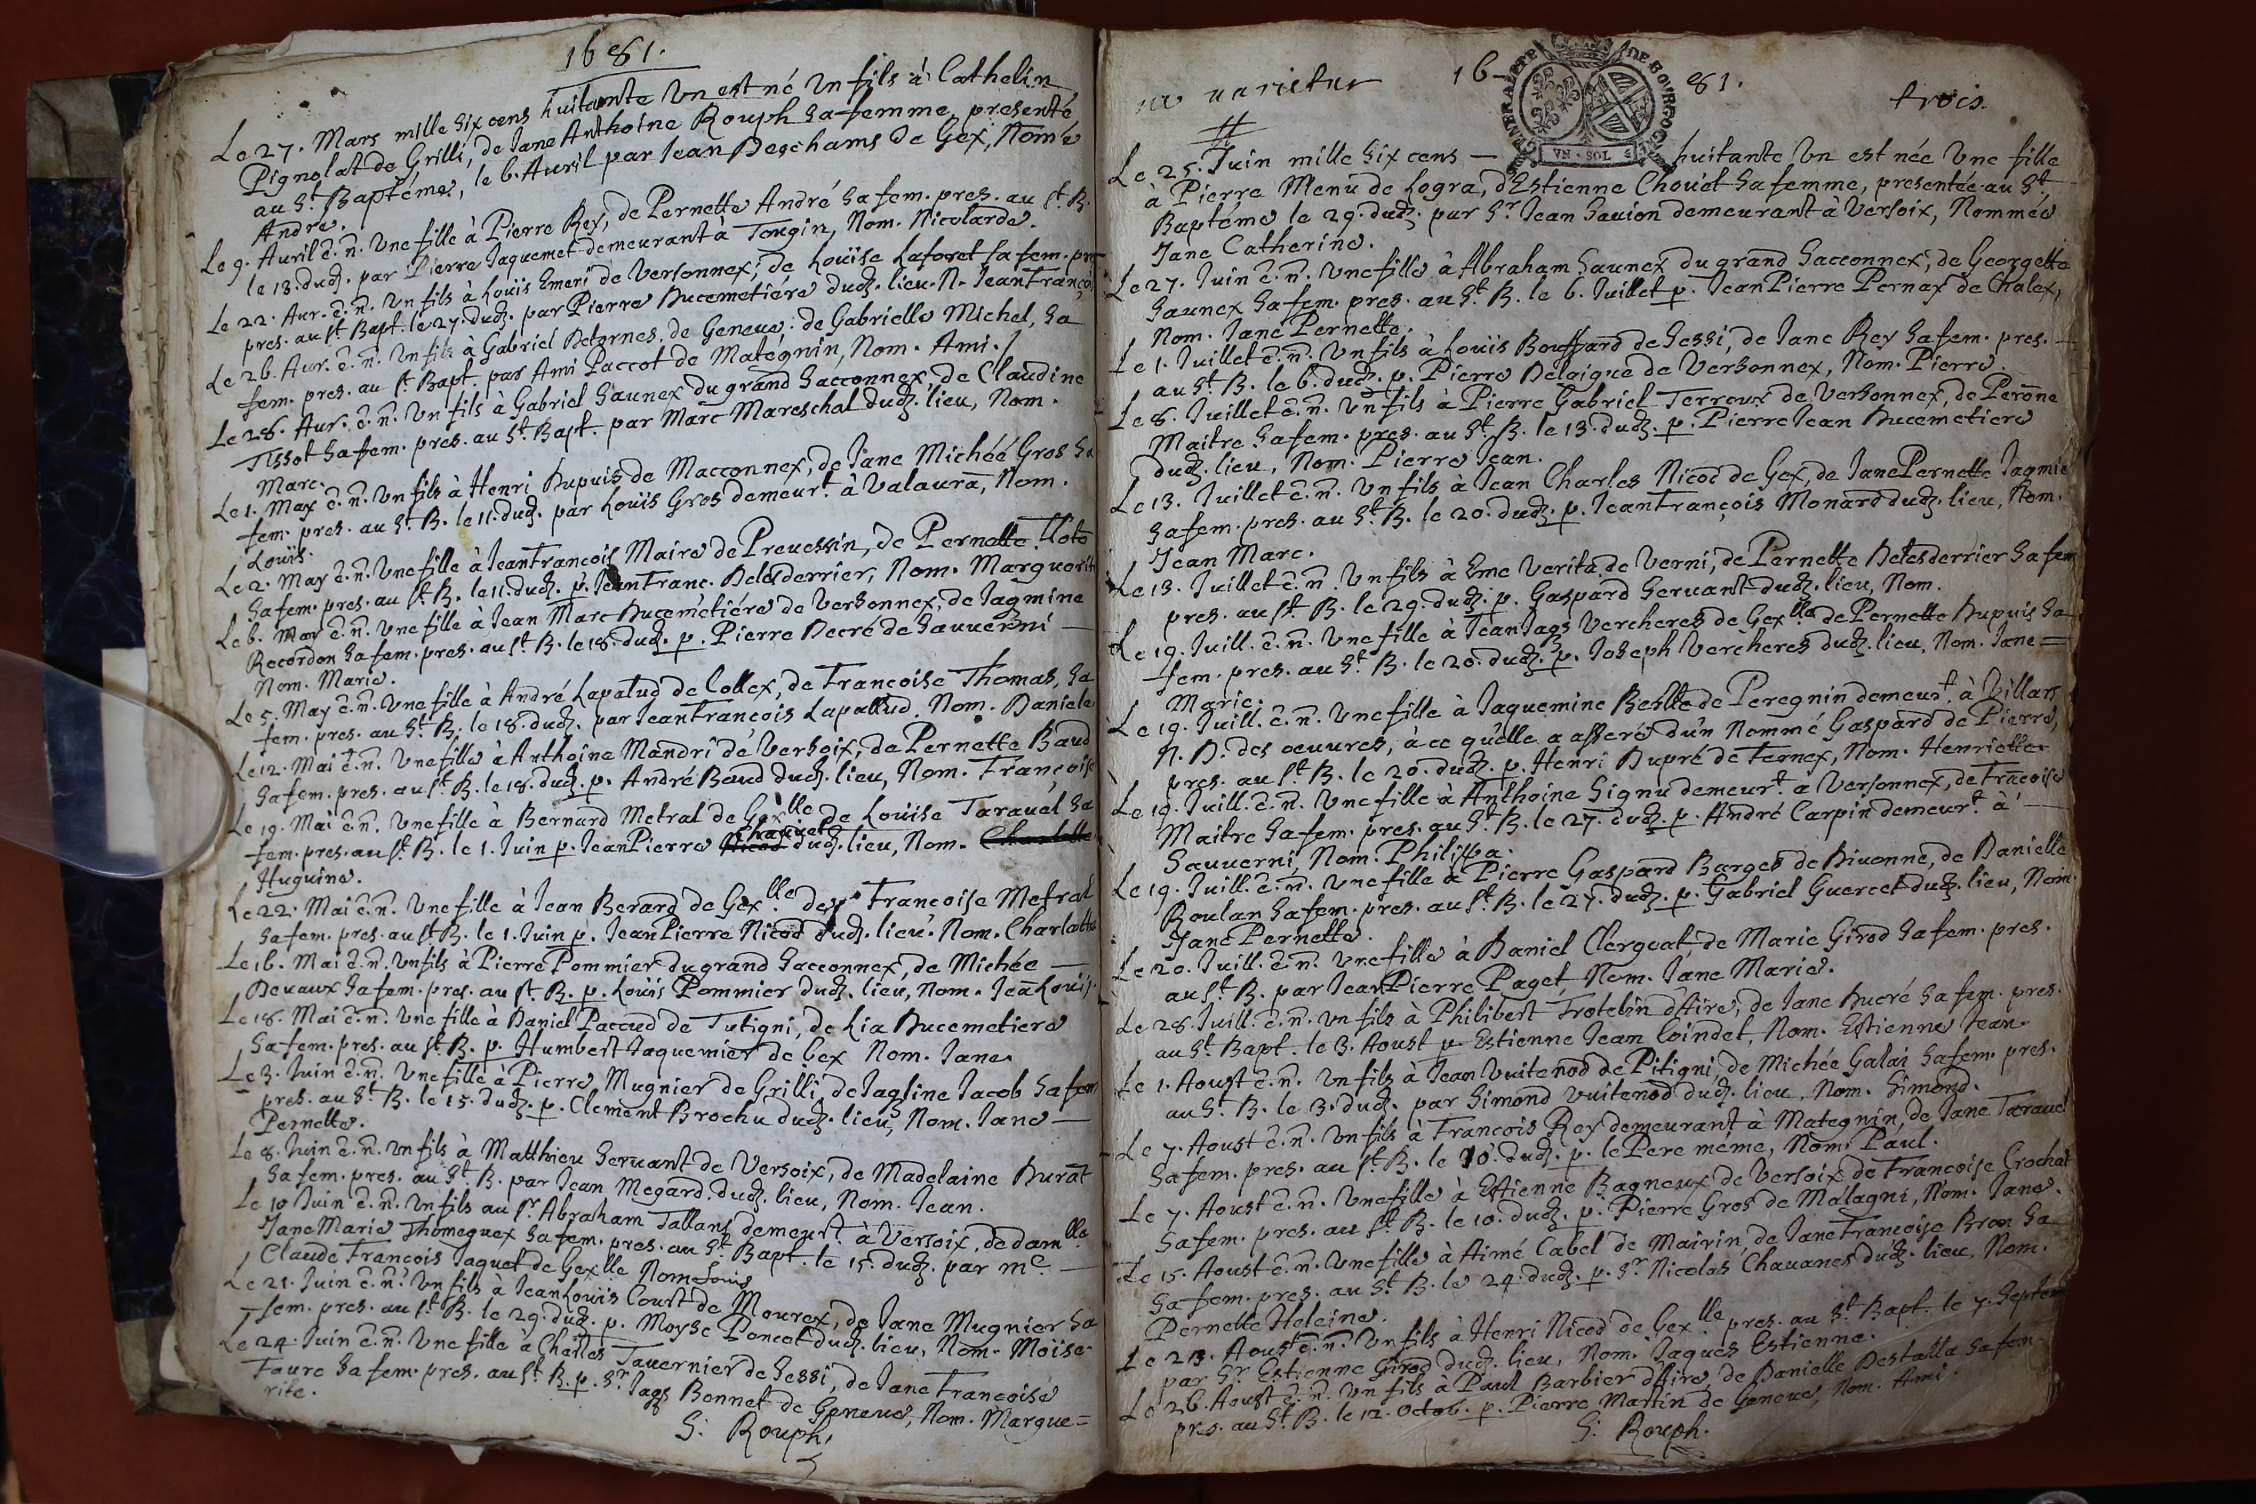 1681.
Le 27. Mars mille six cens huitante Un est né Un fils à Cathelin
Pignolat de Grilli, de Jane Anthoine Rouph sa femme, presenté
au St. Baptéme, le 6. Avril par Jean Deschams de Gex, Nomé
André.
Le 9. Auril ẽ. ñ. Une fille à Pierre Rey, de Pernette André sa fem. pres. au St. B.
le 18. dudz. par Pierre Jaquemet demeurant à Tougin, Nom. Nicolarde.
Le 22. Aur. ẽ. ñ. Un fils à Louïs Emeri de Versonnex, de Louïse Laforet sa fem.
pres. au St. Bapt. le 27. dudz. par Pierre Ducemetiére dudz. lieu. N. Jean François
Le 26. Aur. ẽ. ñ. Un fils à Gabriel Detornes, de Geneue: de Gabrielle Michel, sa
fem. pres. au St. Bapt. par Ami Paccot de Matégnin, Nom. Ami.
Le 28. Aur. ẽ. ñ. Un fils à Gabriel Saunex du grand Sacconnex, de Claudine
Tissot sa fem. pres. au St. Bapt. par Marc Mareschal dudz. lieu, Nom.
Marc.
Le 1. May ẽ. ñ. Un fils à Henri Dupuis de Macconnex, de Jane Michéé Gros sa
fem. pres. au St. B. le 11. dudz. par Louïs Gros demeurt. à Valaurã, Nom.
Louïs.
Le 2. May ẽ. ñ. Une fille à Jean François Maire de Preuessin, de Pernette Flote
sa fem. pres. au St. B. le 11. dudz. p. Jean Franc. Delesderrier, Nom. Marguorite
Le 6. May ẽ. ñ. Une fille à Jean Marc Ducemétiére de Versonnex, de Jaqmine
Recordon sa fem. pres. au St. B. le 18. dudz. p. Pierre Decré de Sauuerni —
Nom. Marie.
Le 5. May ẽ. ñ. Une fille à André Lapalud de Collex, de Françoise Thomas, sa
fem. pres. au St. B. le 18. dudz. par Jean François Lapallud, Nom. Daniele
Le 12. Mai ẽ. ñ. Une fille à Anthoine Mandri de Versoix, de Pernette Baud
sa fem. pres. au St. B. le 18. dudz. p. André Baud dudz. lieu, Nom. Françoise
Le 19. Mai ẽ. ñ. Une fille à Bernard Metral de Gexlle de Louïse Tarauel sa
fem. pres. au St. B. le 1. Juin p. Jean Pierre Nicod dudz. lieu, Nom. Charlotte
Huguine.
Le 22. Mai ẽ. ñ. Une fille à Jean Berard de Gexlle. de Françoise Metral
sa fem. pres. au St. B. le 1. Juin p. Jean Pierre Nicod dudz. lieu. Nom. Charlotte
Le 16. Mai ẽ. ñ. Un fils à Pierre Pommier du grand Sacconnex, de Michée —
Deuaux sa fem. pres. au St. B. p. Louïs Pommier dudz. lieu, Nom. Jeã Louïs.
Le 18. Mai ẽ. ñ. Une fille à Daniel Paccud de Tutigni, de Lia Ducemetiere
sa fem. pres. au St. B. p. Humbert Jaquemier de Gex Nom. Jane.
Le 3. Juin ẽ. ñ. Une fille à Pierre Mugnier de Grilli, de Jaqline Jacob sa fem
pres. au St. B. le 15. dudz. p. Clement Brochu dudz. lieu, Nom. Jane —
Pernette.
Le 8. Juin ẽ. ñ. Un fils à Matthieu Seruant de Versoix, de Madelaine Durãt
sa fem. pres. au St. B. par Jean Megard dudz. lieu, Nom. Jean.
Le 10 Juin ẽ. ñ. Un fils au Sr. Abraham Tallans demeurt. à Versoix, de damlle.
Jane Marie Thomeguex sa fem. pres. au St. Bapt. le 15. dudz. par me. —
Claude François Jaquet de Gexlle Nom Louis
Le 21. Juin ẽ. ñ. Un fils à Jean Louïs Court de Mourex, de Jane Mugnier sa
fem. pres. au St. B. le 29. dudz. p. Moyse Poncet dudz. lieu, Nom. Moïse.
Le 24. Juin ẽ. ñ. Une fille à Charles Tauernier de Sessi, de Jane Françoise
Faure sa fem. pres. au St. B. p. Sr. Jaqs Bonnet de Geneue, Nom. Margue=
rite.
S. Rouph,
ne varietur 16- 81. trois.
GENERALITE DE BOVRGOGNE
VN · SOL
Le 25. Juin mille six cens — huitante Un est née Une fille
à Pierre Menu de Logra, d'Estienne Chouët sa femme, presentée au St.
Baptéme le 29. dudz. par Sr. Jean Sauion demeurant à Versoix, Nommée
Jane Catherine.
Le 27. Juin ẽ. ñ. Une fille à Abraham Saunex du grand Sacconnex, de Georgette
Saunex sa fem. pres. au St. B. le 6. Juillet p. Jean Pierre Pernax de Chalex,
Nom. Jane Pernette.
Le 1. Juillet ẽ. ñ. Un fils à Louïs Bouffard de Sessi, de Jane Rey sa fem. pres. —
au St. B. le 6. dudz. p. Pierre Delaigue de Versonnex, Nom. Pierre.
Le 8. Juillet ẽ. ñ. Un fils à Pierre Gabriel Terroux de Versonnex, de Perõne
Maitre sa fem. pres. au St. B. le 13. dudz. p. Pierre Jean Ducemetiere
dudz. lieu, Nom. Pierre Jean.
Le 13. Juillet ẽ. ñ. Un fils à Jean Charles Nicod de Gex, de Jane Pernette Jaqmie
sa fem. pres. au St. B. le 20. dudz. p. Jean François Monard dudz. lieu, Nom.
Jean Marc.
Le 13. Juillet ẽ. ñ. Un fils à Eme Verita de Verni, de Pernette Delesderrier sa fem
pres. au St. B. le 29. dudz. p. Gaspard Seruant dudz. lieu, Nom.
Le 19. Juill. ẽ. ñ. Une fille à Jean Jaqs Vercheres de Gexlle de Pernette Dupuis sa
fem. pres. au St. B. le 20. dudz. p. Joseph Vercheres dudz. lieu, Nom. Jane =
Marie.
Le 19. Juill. ẽ. ñ. Une fille à Jaquemine Beslte de Peregnin demeurt. à Villars
N. D. des oeuvres, à ce qu'elle a asseré d'un Nommé Gaspard de Pierre,
pres. au St. B. le 20. dudz. p. Henri Dupré de Fernex, Nom. Henriette
Le 19. Juill. ẽ. ñ. Une fille à Anthoine Signu demeurt. a Versonnex, de Frãcoise
Maitre sa fem. pres. au St. B. le 27. dudz. p. André Carpin demeurt. à —
Sauuerni, Nom. Philippa.
Le 19. Juill. ẽ. ñ. Une fille à Pierre Gaspard Barges de Diuonne, de Danielle
Roulan sa fem. pres. au St. B. le 27. dudz. p. Gabriel Guercet dudz. lieu, Nom.
Jane Pernette.
Le 20. Juill. ẽ. ñ. Une fille à Daniel Clergeat, de Marie Girod sa fem. pres.
au St. B. par Jean Pierre Paget Nom. Jane Marie.
Le 28. Juill. ẽ. ñ. Un fils à Philibert Frotelin d'Aire, de Jane Ducré sa fem. pres.
au St. Bapt. le 3. Aoust p. Estienne Jean Coindet, Nom. Estienne Jean.
Le 1. Aoust ẽ. ñ. Un fils à Jean Vuitenod de Pitigni, de Michée Galai sa fem. pres.
au St. B. le 3. dudz. par Simond Vuitenod dudz. lieu, Nom. Simond.
Le 7. Aoust ẽ. ñ. Un fils à François Rey demeurant à Mategnin, de Jane Tarauel
sa fem. pres. au St. B. le 10. dudz. p. le Pere méme, Nom. Paul.
Le 7. Aoust ẽ. ñ. Une fille à Estienne Bagneux de Versoix de Françoise Crochat
sa fem. pres. au St. B. le 10. dudz. p. Pierre Gros de Mellagni, Nom. Jane.
Le 15. Aoust ẽ. ñ. Une fille à Aimé Cabel de Mairin, de Jane Françoise Bron sa
sa fem. pres. au St. B. le 24. dudz. p. Sr. Nicolas Chauanes dudz. lieu, Nom.
Pernette Heleine.
Le 23. Aoust ẽ. ñ. Un fils à Henri Nicod de Gexlle pres. au St. Bapt. le 7. Septem
par Sr Estienne Girod dudz. lieu, Nom. Jaques Estienne.
Le 26. Aoust ẽ. ñ. Un fils à Paul Barbier d'Aire, de Danielle Destalla sa fem
pres. au St. B. le 12. Octob. p. Pierre Martin de Geneue, Nom. Ami.
S. Rouph.